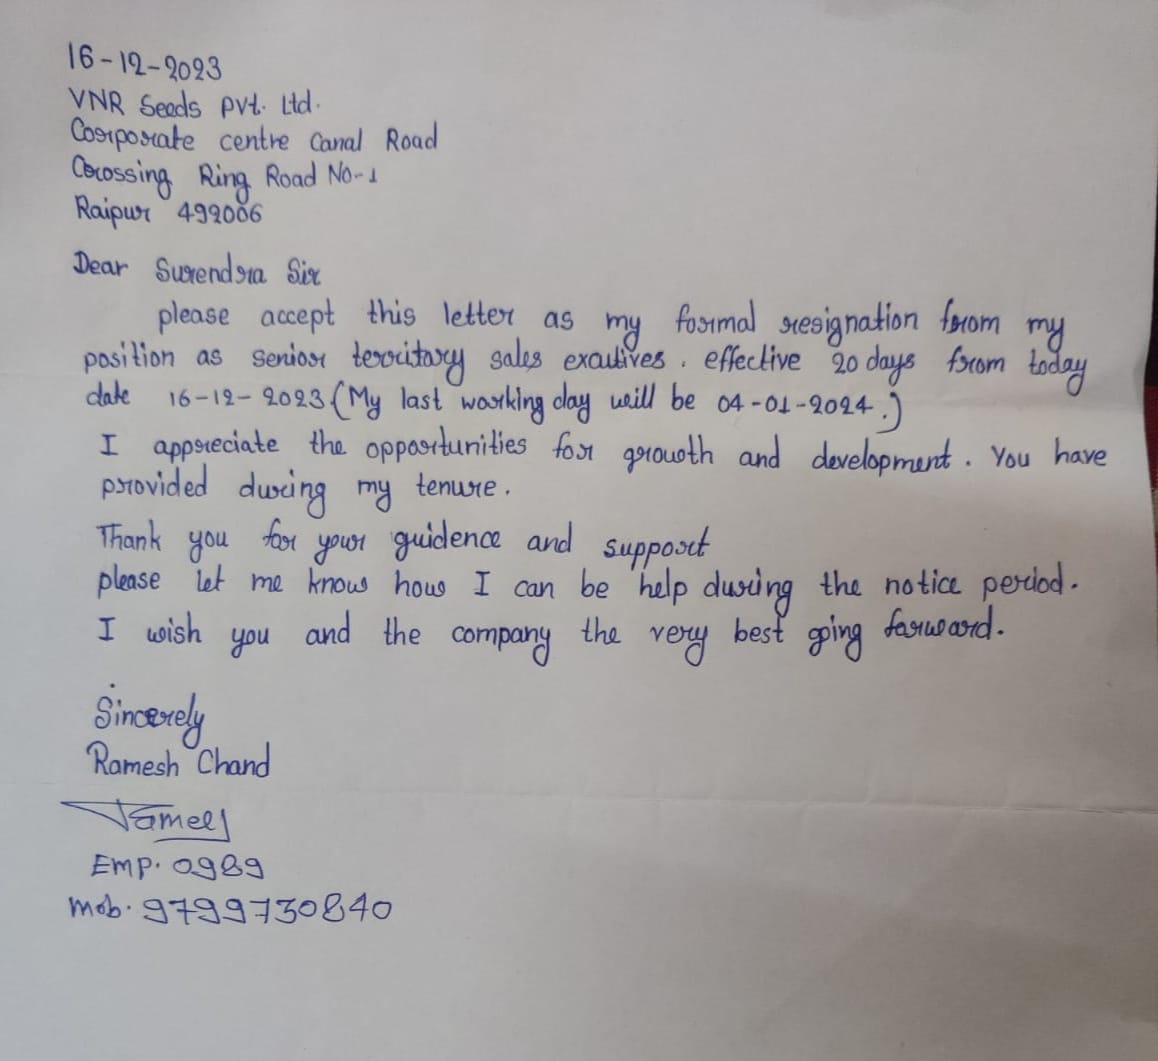 16-12-2023
VNR Seeds pvt. Ltd.
Corporate centre Canal Road
Crossing Ring Road No-1
Raipur 492006
Dear Surendra Sir
please accept this letter as my formal resignation from my
position as senior territary sales exautives. effective 20 days from today
date 16-12-2023 (My last working day will be 04-01-2024.)
I appreciate the opportunities for growth and development. You have
provided during my tenure.
Thank you for your guidence and support
please let me know how I can be help during the notice period.
I wish you and the company the very best going farward.
Sincerely
Ramesh Chand
Emp. 0989
Mob. 9799730840